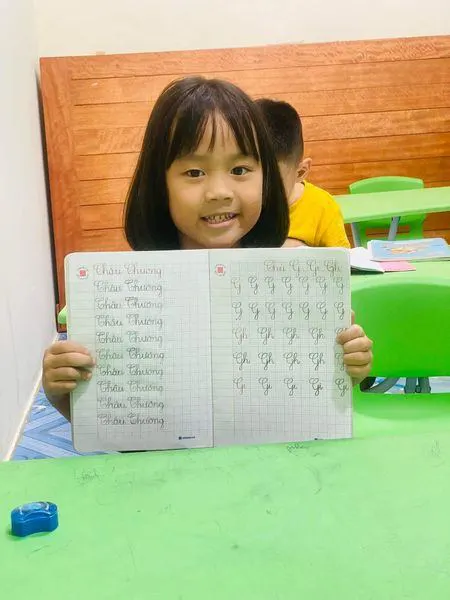 Châu Chương
Châu Chương
Châu Chương
Châu Chương
Châu Chương
Châu Chương
Châu Chương
Châu Chương
Châu Chương
Châu Chương
Chữ G Gi Gh
G G G G G G G
G G G G G G G
Gh Gh Gh Gh Gh
Gh Gh Gh Gh Gh
Gi Gi Gi Gi Gi